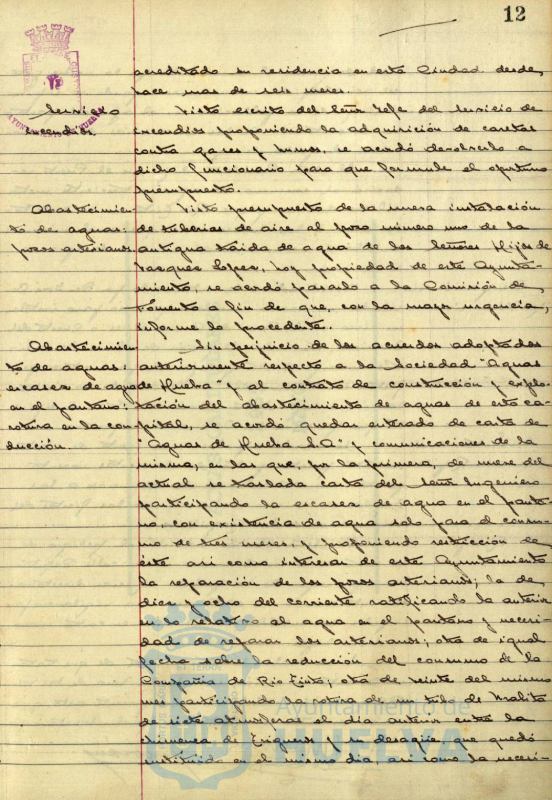 12
acreditado su residencia en esta Ciudad desde,
hace mas de seis meses.
Servicio
incendios.
Visto escrito del Señor Jefe del Servicio de
incendios proponiendo la adquisición de caretas
contra gases y humos, se acordó devolverlo a
dicho funcionario para que formule el oportuno
presupuesto.
Abastecimien-
to de aguas:
pozos artesianos.
Visto presupuesto de la nueva instalación
de tuberias de aire al pozo número uno de la
antigua traida de agua de los Señores Hijos de
Vazquez Lopez, hoy propiedad de este Ayunta-
miento, se acordó pasarlo a la Comisión de
Fomento a fin de que, con la mayor urgencia,
informe lo procedente.
Abastecimien
to de aguas:
escasez de agua
en el pantano:
rotura en la con
ducción.
Sin perjuicio de los acuerdos adoptados
anteriormente respecto a la Sociedad "Aguas
de Huelva" y al contrato de construcción y explo-
tación del abastecimiento de aguas de esta ca-
pital, se acordó quedar enterado de carta de
"Aguas de Huelva S.A" y comunicaciones de la
misma, en las que, por la primera, de nueve del
actual se traslada carta del Señor Ingeniero
participando la escasez de agua en el panta-
no, con existencia de agua solo para el consu-
mo de tres meses, y proponiendo restricción de
éste asi como interesar de este Ayuntamiento
la reparación de los pozos artesianos; la de
diez y ocho del corriente ratificando la anterior
en lo relativo al agua en el pantano y necesi-
dad de reparar los artesianos; otra de igual
fecha sobre la reducción del consumo de la
Compañia de Rio Tinto; otra de veinte del mismo
mes participando la rotura de un tubo de Uralita
de siete atmosferas el dia anterior entre la
chimenea de Trigueros y su desagüe que quedó
sustituido en el mismo dia, asi como la necesi-
Ayuntamiento de
HUELVA